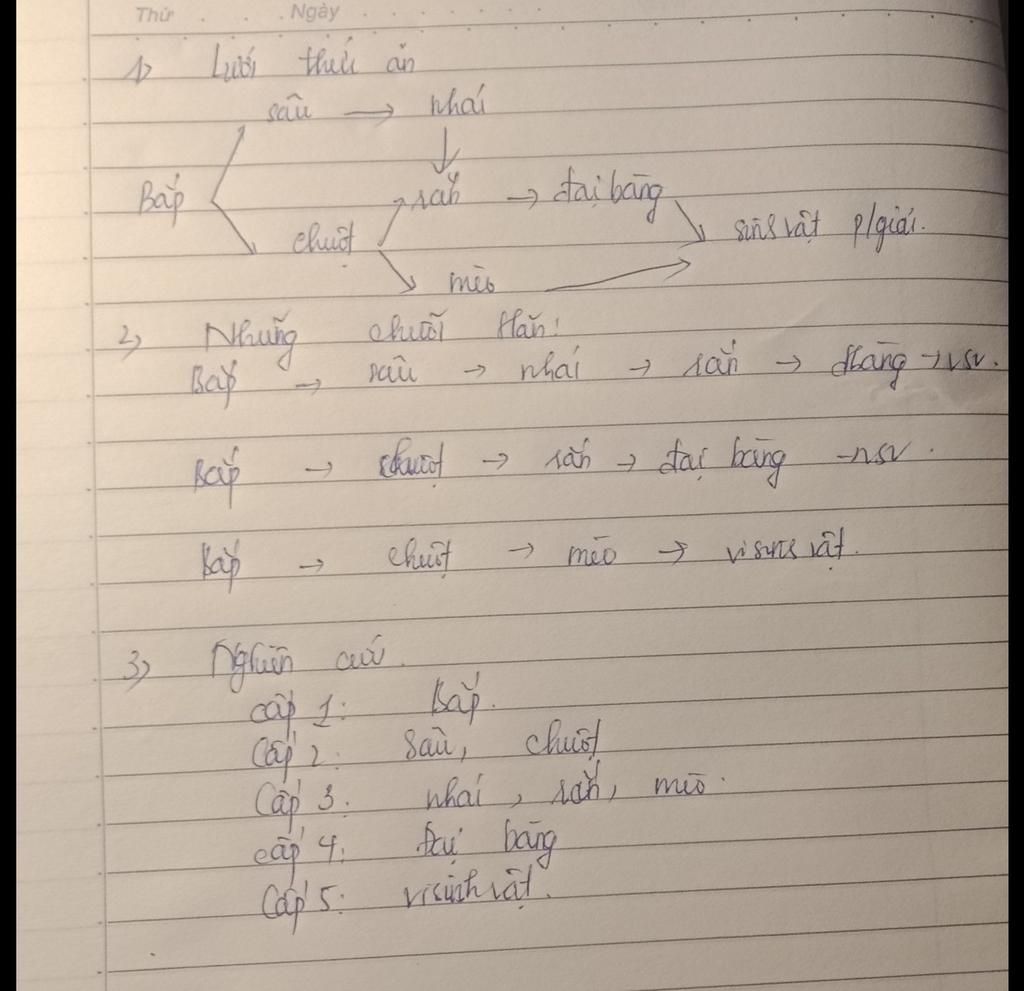 Thứ . . . Ngày . . . . .
1) Lưới thức ăn
sâu → nhái
Bắp
rắn → đại bàng
chuột
sinh vật p/giải.
mèo
2) Những chuỗi t/ăn:
Bắp → sâu → nhái → rắn → đ/bàng → vsv.
Bắp → chuột → rắn → đại bàng → vsv.
Bắp → chuột → mèo → vi sinh vật.
3)
cấp 1: Bắp.
Cấp 2: Sâu, chuột
Cấp 3: nhái, rắn, mèo.
cấp 4: Đại bàng
Cấp 5: vi sinh vật.